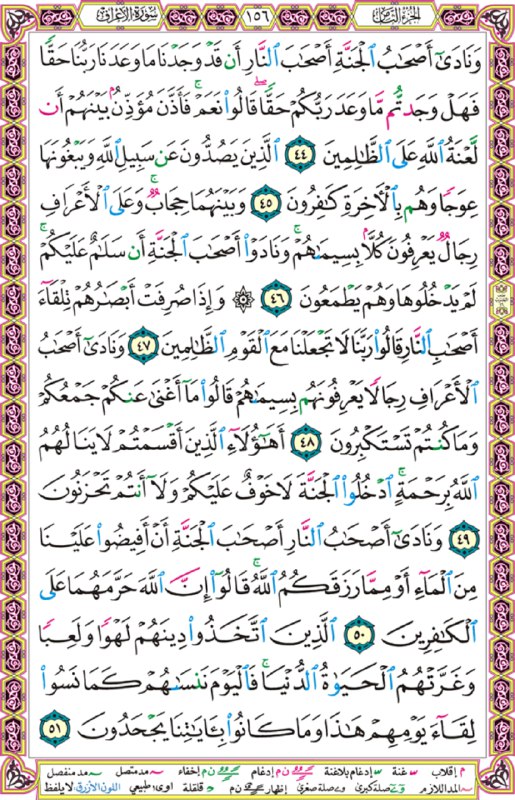 سُورَةُ الأَعْرَافِ ١٥٦ الجُزْءُ الثَّامِنُ
وَنَادَىٰٓ أَصْحَٰبُ ٱلْجَنَّةِ أَصْحَٰبَ ٱلنَّارِ أَن قَدْ وَجَدْنَا مَا وَعَدَنَا رَبُّنَا حَقًّا
فَهَلْ وَجَدتُّم مَّا وَعَدَ رَبُّكُمْ حَقًّا ۖ قَالُوا۟ نَعَمْ ۚ فَأَذَّنَ مُؤَذِّنٌۢ بَيْنَهُمْ أَن
لَّعْنَةُ ٱللَّهِ عَلَى ٱلظَّٰلِمِينَ ٤٤ ٱلَّذِينَ يَصُدُّونَ عَن سَبِيلِ ٱللَّهِ وَيَبْغُونَهَا
عِوَجًا وَهُم بِٱلْءَاخِرَةِ كَٰفِرُونَ ٤٥ وَبَيْنَهُمَا حِجَابٌ ۚ وَعَلَى ٱلْأَعْرَافِ
رِجَالٌ يَعْرِفُونَ كُلًّۢا بِسِيمَىٰهُمْ ۚ وَنَادَوْا۟ أَصْحَٰبَ ٱلْجَنَّةِ أَن سَلَٰمٌ عَلَيْكُمْ ۚ
لَمْ يَدْخُلُوهَا وَهُمْ يَطْمَعُونَ ٤٦ ۞ وَإِذَا صُرِفَتْ أَبْصَٰرُهُمْ تِلْقَآءَ
أَصْحَٰبِ ٱلنَّارِ قَالُوا۟ رَبَّنَا لَا تَجْعَلْنَا مَعَ ٱلْقَوْمِ ٱلظَّٰلِمِينَ ٤٧ وَنَادَىٰٓ أَصْحَٰبُ
ٱلْأَعْرَافِ رِجَالًا يَعْرِفُونَهُم بِسِيمَىٰهُمْ قَالُوا۟ مَآ أَغْنَىٰ عَنكُمْ جَمْعُكُمْ
وَمَا كُنتُمْ تَسْتَكْبِرُونَ ٤٨ أَهَٰٓؤُلَآءِ ٱلَّذِينَ أَقْسَمْتُمْ لَا يَنَالُهُمُ
ٱللَّهُ بِرَحْمَةٍ ۚ ٱدْخُلُوا۟ ٱلْجَنَّةَ لَا خَوْفٌ عَلَيْكُمْ وَلَآ أَنتُمْ تَحْزَنُونَ
٤٩ وَنَادَىٰٓ أَصْحَٰبُ ٱلنَّارِ أَصْحَٰبَ ٱلْجَنَّةِ أَنْ أَفِيضُوا۟ عَلَيْنَا
مِنَ ٱلْمَآءِ أَوْ مِمَّا رَزَقَكُمُ ٱللَّهُ ۚ قَالُوٓا۟ إِنَّ ٱللَّهَ حَرَّمَهُمَا عَلَى
ٱلْكَٰفِرِينَ ٥٠ ٱلَّذِينَ ٱتَّخَذُوا۟ دِينَهُمْ لَهْوًا وَلَعِبًا
وَغَرَّتْهُمُ ٱلْحَيَوٰةُ ٱلدُّنْيَا ۚ فَٱلْيَوْمَ نَنسَىٰهُمْ كَمَا نَسُوا۟
لِقَآءَ يَوْمِهِمْ هَٰذَا وَمَا كَانُوا۟ بِـَٔايَٰتِنَا يَجْحَدُونَ ٥١
م إقلاب غنة إدغام بلاغنة ن م إدغام ن م إخفاء مد متصل مد منفصل
المد اللازم صلة كبرى صلة صغرى إظهار ن م قلقلة طبيعي اللون الأزرق لا يلفظ